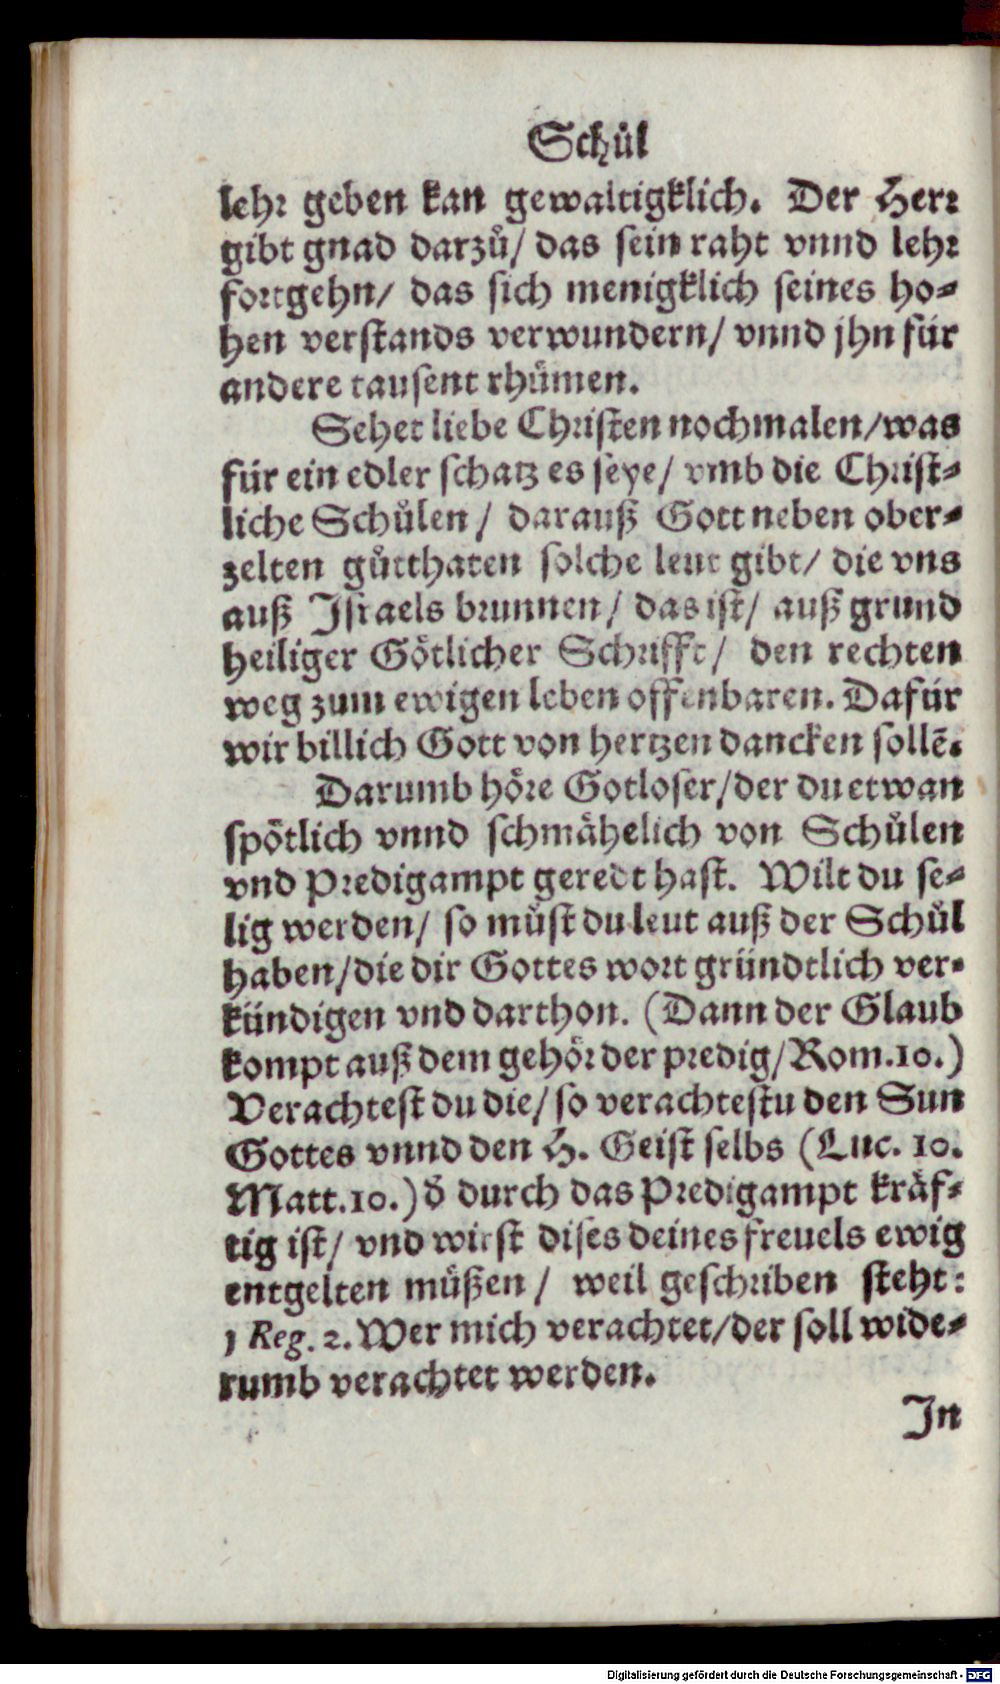 Schůl
lehr geben kan gewaltigklich. Der Herr
gibt gnad darzů/ das sein raht vnnd lehr
fortgehn/ das sich menigklich seines ho-
hen verstands verwundern/ vnnd jhn für
andere tausent rhümen.
Sehet liebe Christen nochmalen/was
für ein edler schatz es seye/ vmb die Christ-
liche Schůlen/ darauß Gott neben ober-
zelten gůtthaten solche leut gibt/ die vns
auß Israels brunnen/ das ist/ auß grund
heiliger Götlicher Schrifft/ den rechten
weg zum ewigen leben offenbaren. Dafür
wir billich Gott von hertzen dancken sollẽ.
Darumb höre Gotloser/der du etwan
spötlich vnnd schmähelich von Schůlen
vnd Predigampt geredt hast. Wilt du se-
lig werden/ so můst du leut auß der Schůl
haben/die dir Gottes wort gründtlich ver-
kündigen vnd darthon. (Dann der Glaub
kompt auß dem gehör der predig/Rom.10.)
Verachtest du die/ so verachtestu den Sun
Gottes vnnd den H. Geist selbs (Luc. 10.
Matt.10.) d̄ durch das Predigampt kräf-
tig ist/ vnd wirst dises deines freuels ewig
entgelten müßen/ weil geschriben steht:
1 Reg. 2. Wer mich verachtet/der soll wide-
rumb verachtet werden.
In
Digitalisierung gefördert durch die Deutsche Forschungsgemeinschaft - DFG